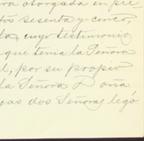 ra otorgada en pre
tos sesenta y cinco,
la cuyo testimonio
que tenia la Señora
l, por su propio
la Señora Doña
vas dos Señoras legó